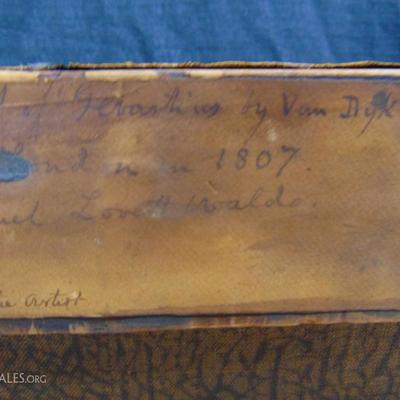 of St. Sebastius by Van Dyk
London in 1807.
uel Lovett Waldo.
he artist
ALES.ORG